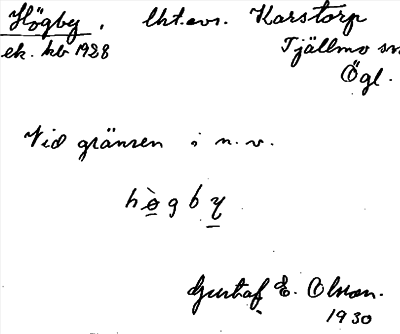 Högby, Ukt. avs. Karstorp
ek. kb 1928 Tjällmo sn
Ögl.
Vid gränsen i n.v.
hø̀gby
Gustaf E. Olson.
1930